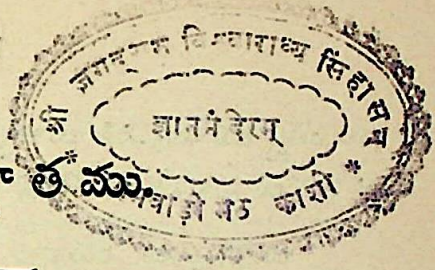 श्री जगद्गुरु विश्वाराध्य सिंहासन
ज्ञानमंदिरम्
जंगमवाड़ी मठ काशी *
త ము.